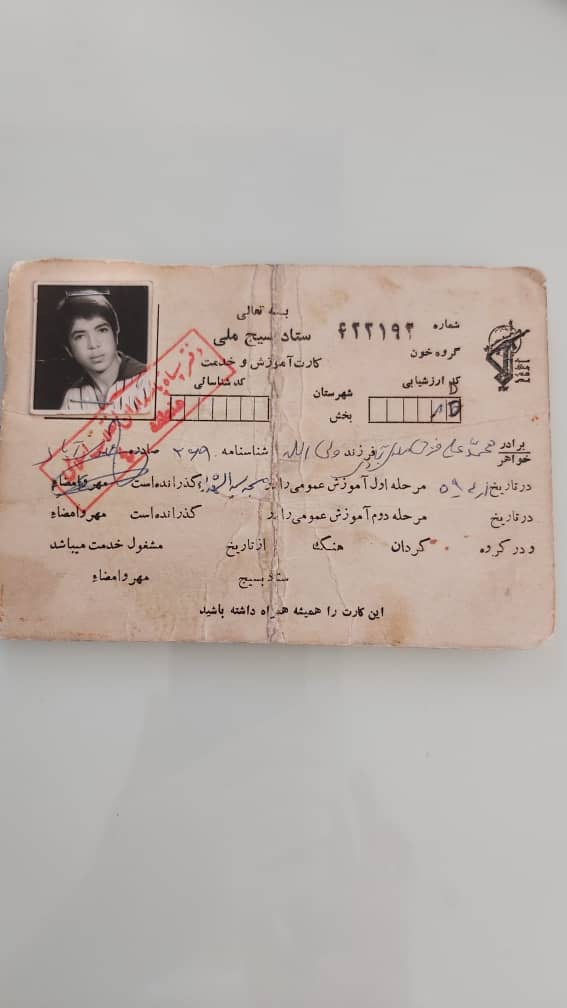 بسمه تعالی
ستاد بسیج ملی
کارت آموزش و خدمت
شماره ۶۲۲۱۹۲
گروه خون
کد ارزشیابی
شهرستان
بخش
کد شناسائی
برادر
خواهر
محمد علی فرزند ولی الله شناسنامه ۲۶۹ صادره
در تاریخ مرحله اول آموزش عمومی را در گذرانده است مهر و امضاء
در تاریخ مرحله دوم آموزش عمومی را در گذرانده است مهر و امضاء
و در گروه گردان هنگ از تاریخ مشغول خدمت میباشد
ستاد بسیج مهر و امضاء
این کارت را همیشه همراه داشته باشید